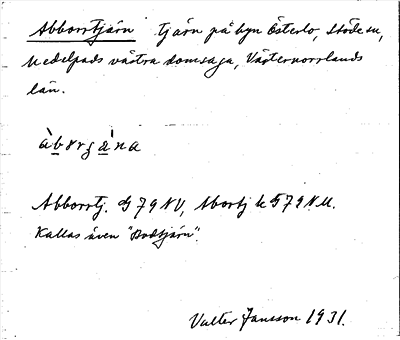 Abborrtjärn tjärn på byn Österlo, Stöde sn,
Medelpads västra domsaga, Västernorrlands
län.
àbɒrgána
Abborrtj. G79NV, Abortj k G79NV.
Kallas även "Bodtjärn".
Valter Jansson 1931.